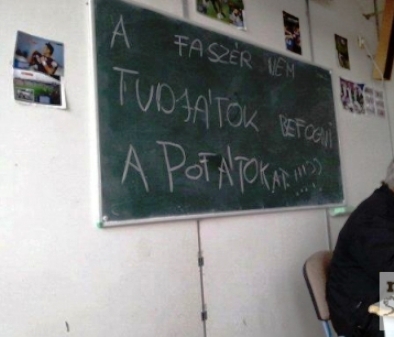 A FASZÉR NEM
TUDJÁTOK BEFOGNI
A POFÁTOKAT!!!